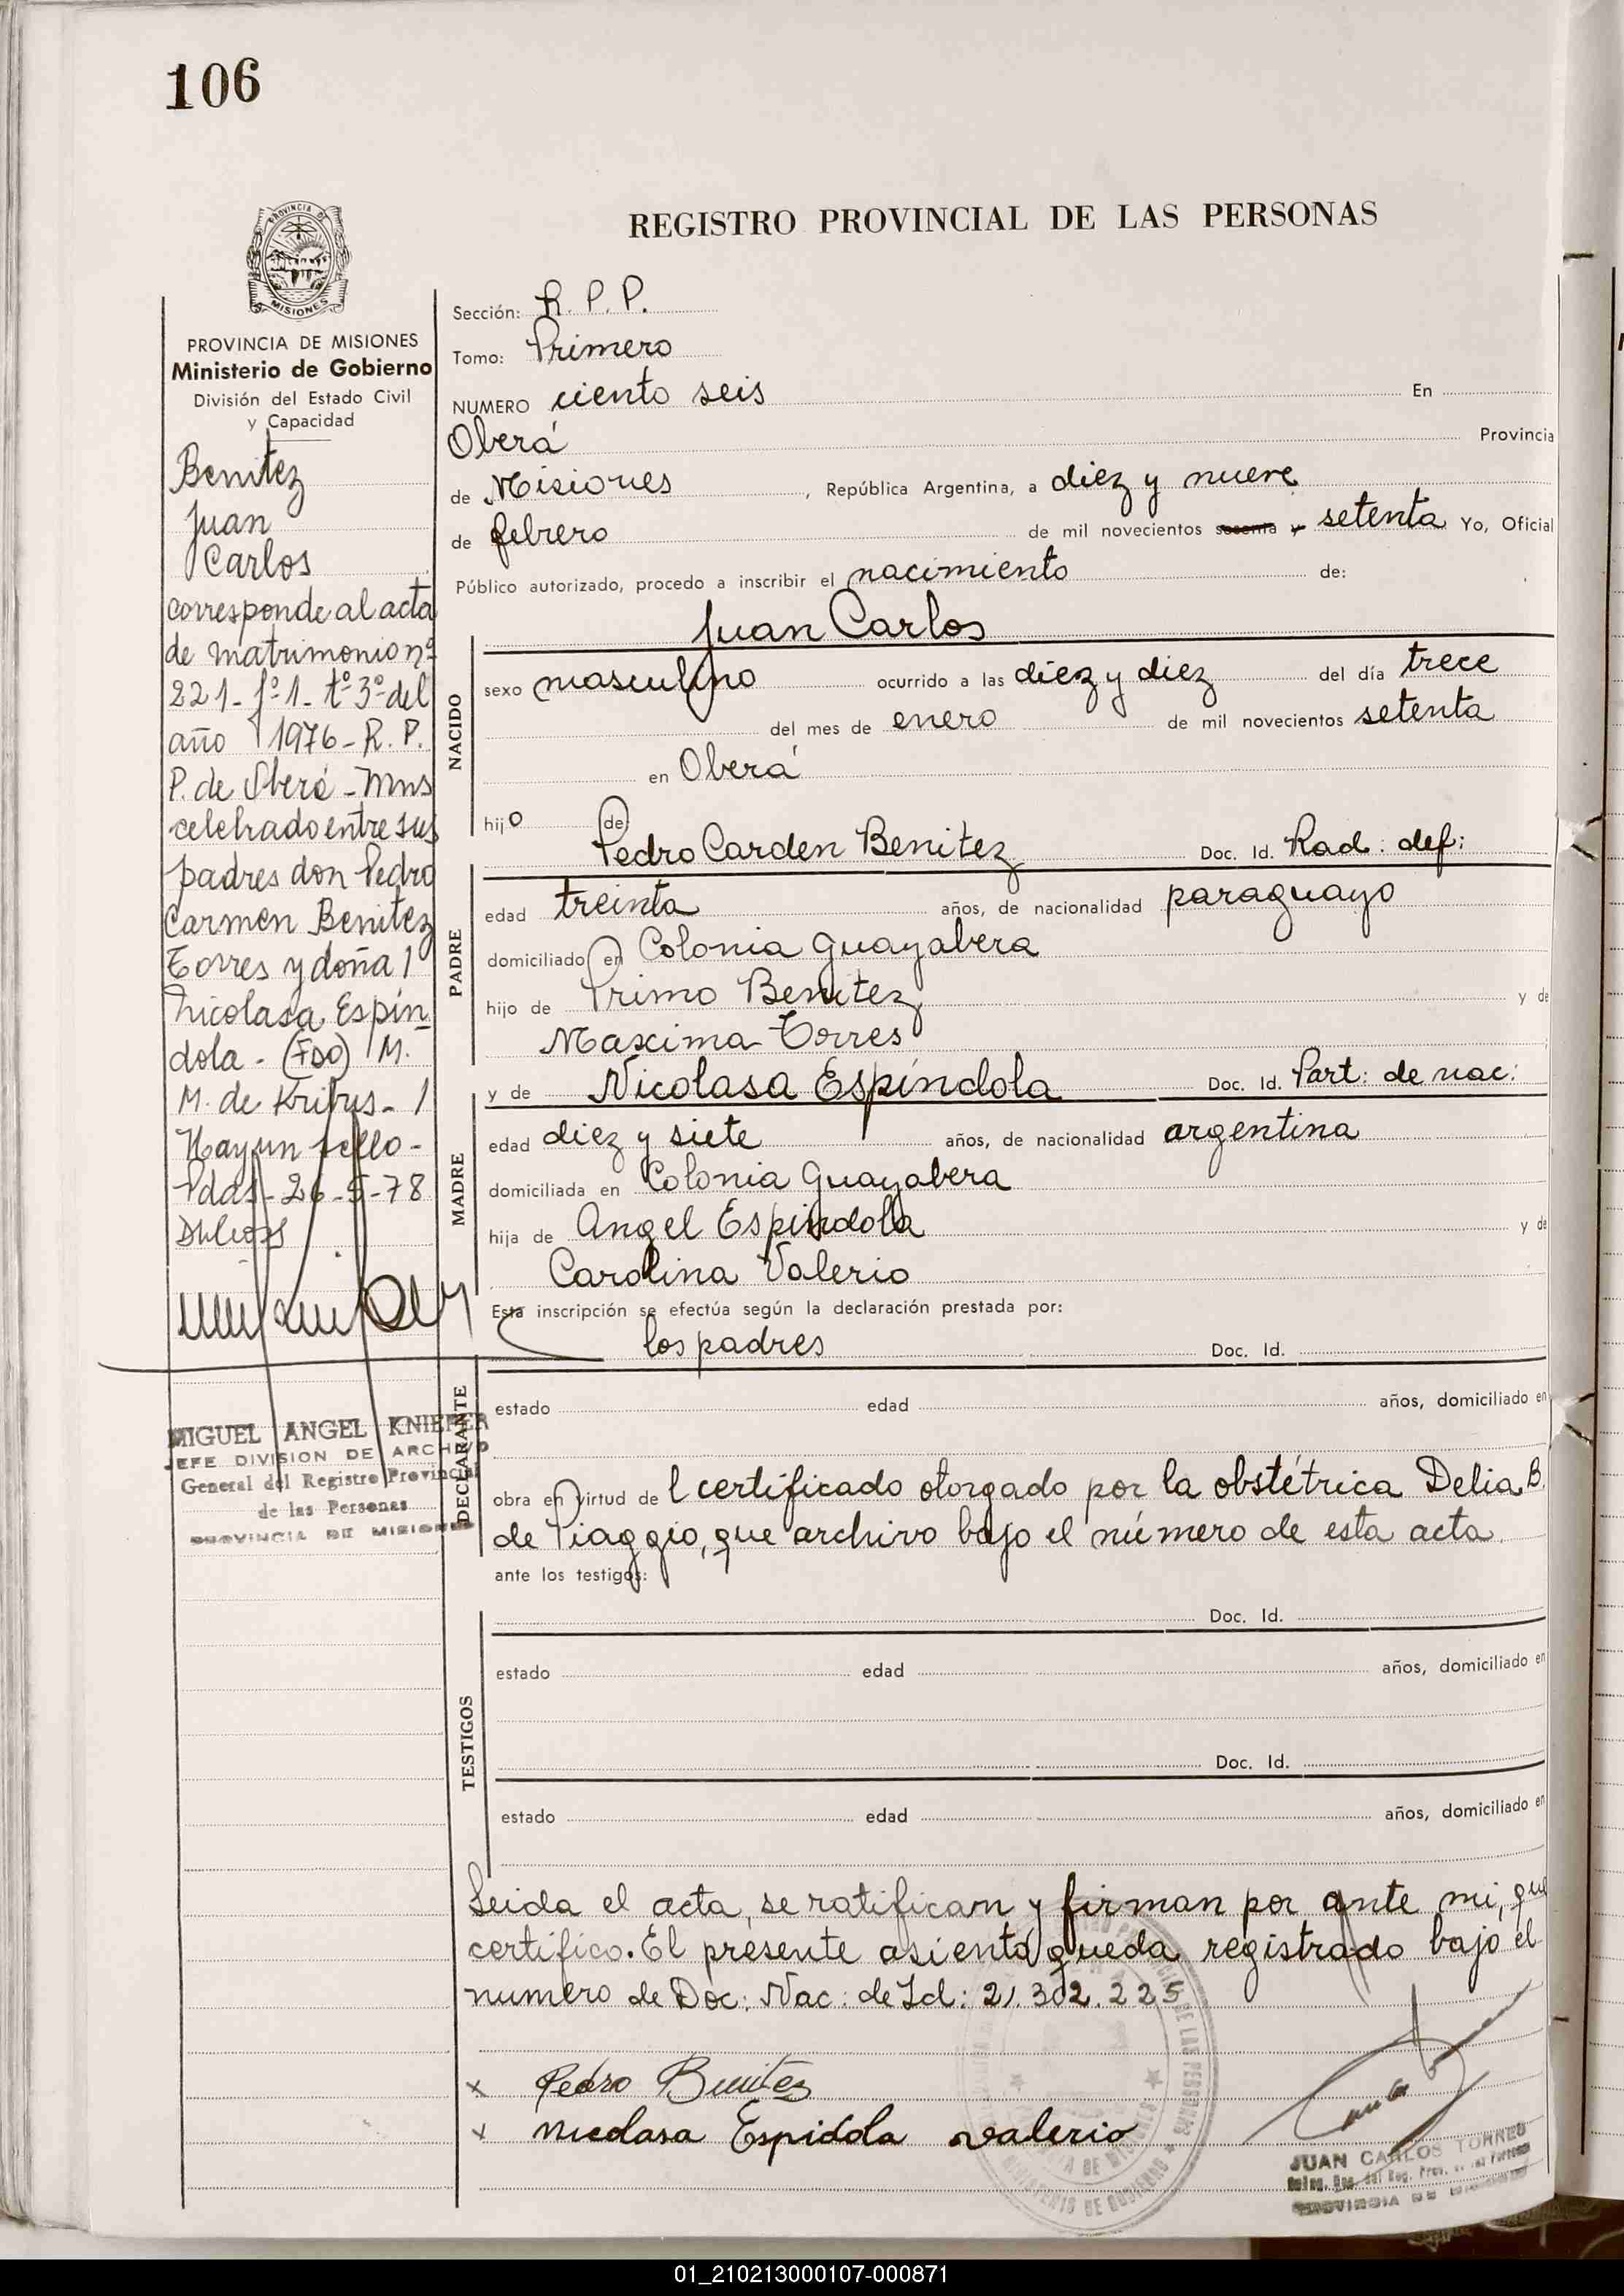 106
PROVINCIA DE
MISIONES
PROVINCIA DE MISIONES
Ministerio de Gobierno
División del Estado Civil
y Capacidad
Benitez
Juan
Carlos
corresponde al acta
de matrimonio nº
221 - fº 1 - tº 3º del
año 1976 - R. P.
P. de Oberá - Mns
celebrado entre sus
padres don Pedro
Carmen Benitez
Torres y doña
Nicolasa Espín
dola - (Fdo) M.
M. de - 
Hay un sello -
Pdas - 26-5-78
MIGUEL ANGEL KNIEFER
JEFE DIVISION DE ARCHIVO
General del Registro Provincial
de las Personas
PROVINCIA DE MISIONES
REGISTRO PROVINCIAL DE LAS PERSONAS
Sección: R. P. P.
Tomo: Primero
NUMERO ciento seis En
Oberá Provincia
de Misiones, República Argentina, a diez y nueve
de febrero de mil novecientos sesenta y setenta Yo, Oficial
Público autorizado, procedo a inscribir el nacimiento de:
Juan Carlos
NACIDO
sexo masculino ocurrido a las diez y diez del día trece
del mes de enero de mil novecientos setenta
en Oberá
hijo de
Pedro Carden Benitez Doc. Id. Rad: def:
PADRE
edad treinta años, de nacionalidad paraguayo
domiciliado en Colonia Guayabera
hijo de Primo Benitez y de
Maxima Torres
y de Nicolasa Espíndola Doc. Id. Part: de nac:
MADRE
edad diez y siete años, de nacionalidad argentina
domiciliada en Colonia Guayabera
hija de Angel Espindola y de
Carolina Valerio
Esta inscripción se efectúa según la declaración prestada por:
los padres Doc. Id.
DECLARANTE
estado edad años, domiciliado en
obra en virtud de l certificado otorgado por la obstétrica Delia B.
de Piaggio, que archivo bajo el número de esta acta.
ante los testigos:
Doc. Id.
TESTIGOS
estado edad años, domiciliado en
Doc. Id.
estado edad años, domiciliado en
Leida el acta, se ratifican y firman por ante mi, que
certifico. El presente asiento queda registrado bajo el
numero de Doc: Nac: de Id: 21.302.225
x Pedro Benitez
x Nicolasa Espidola Valerio
DE LAS PERSONAS
MINISTERIO DE GOBIERNO
JUAN CARLOS TORRES
PROVINCIA DE MISIONES
01_210213000107-000871